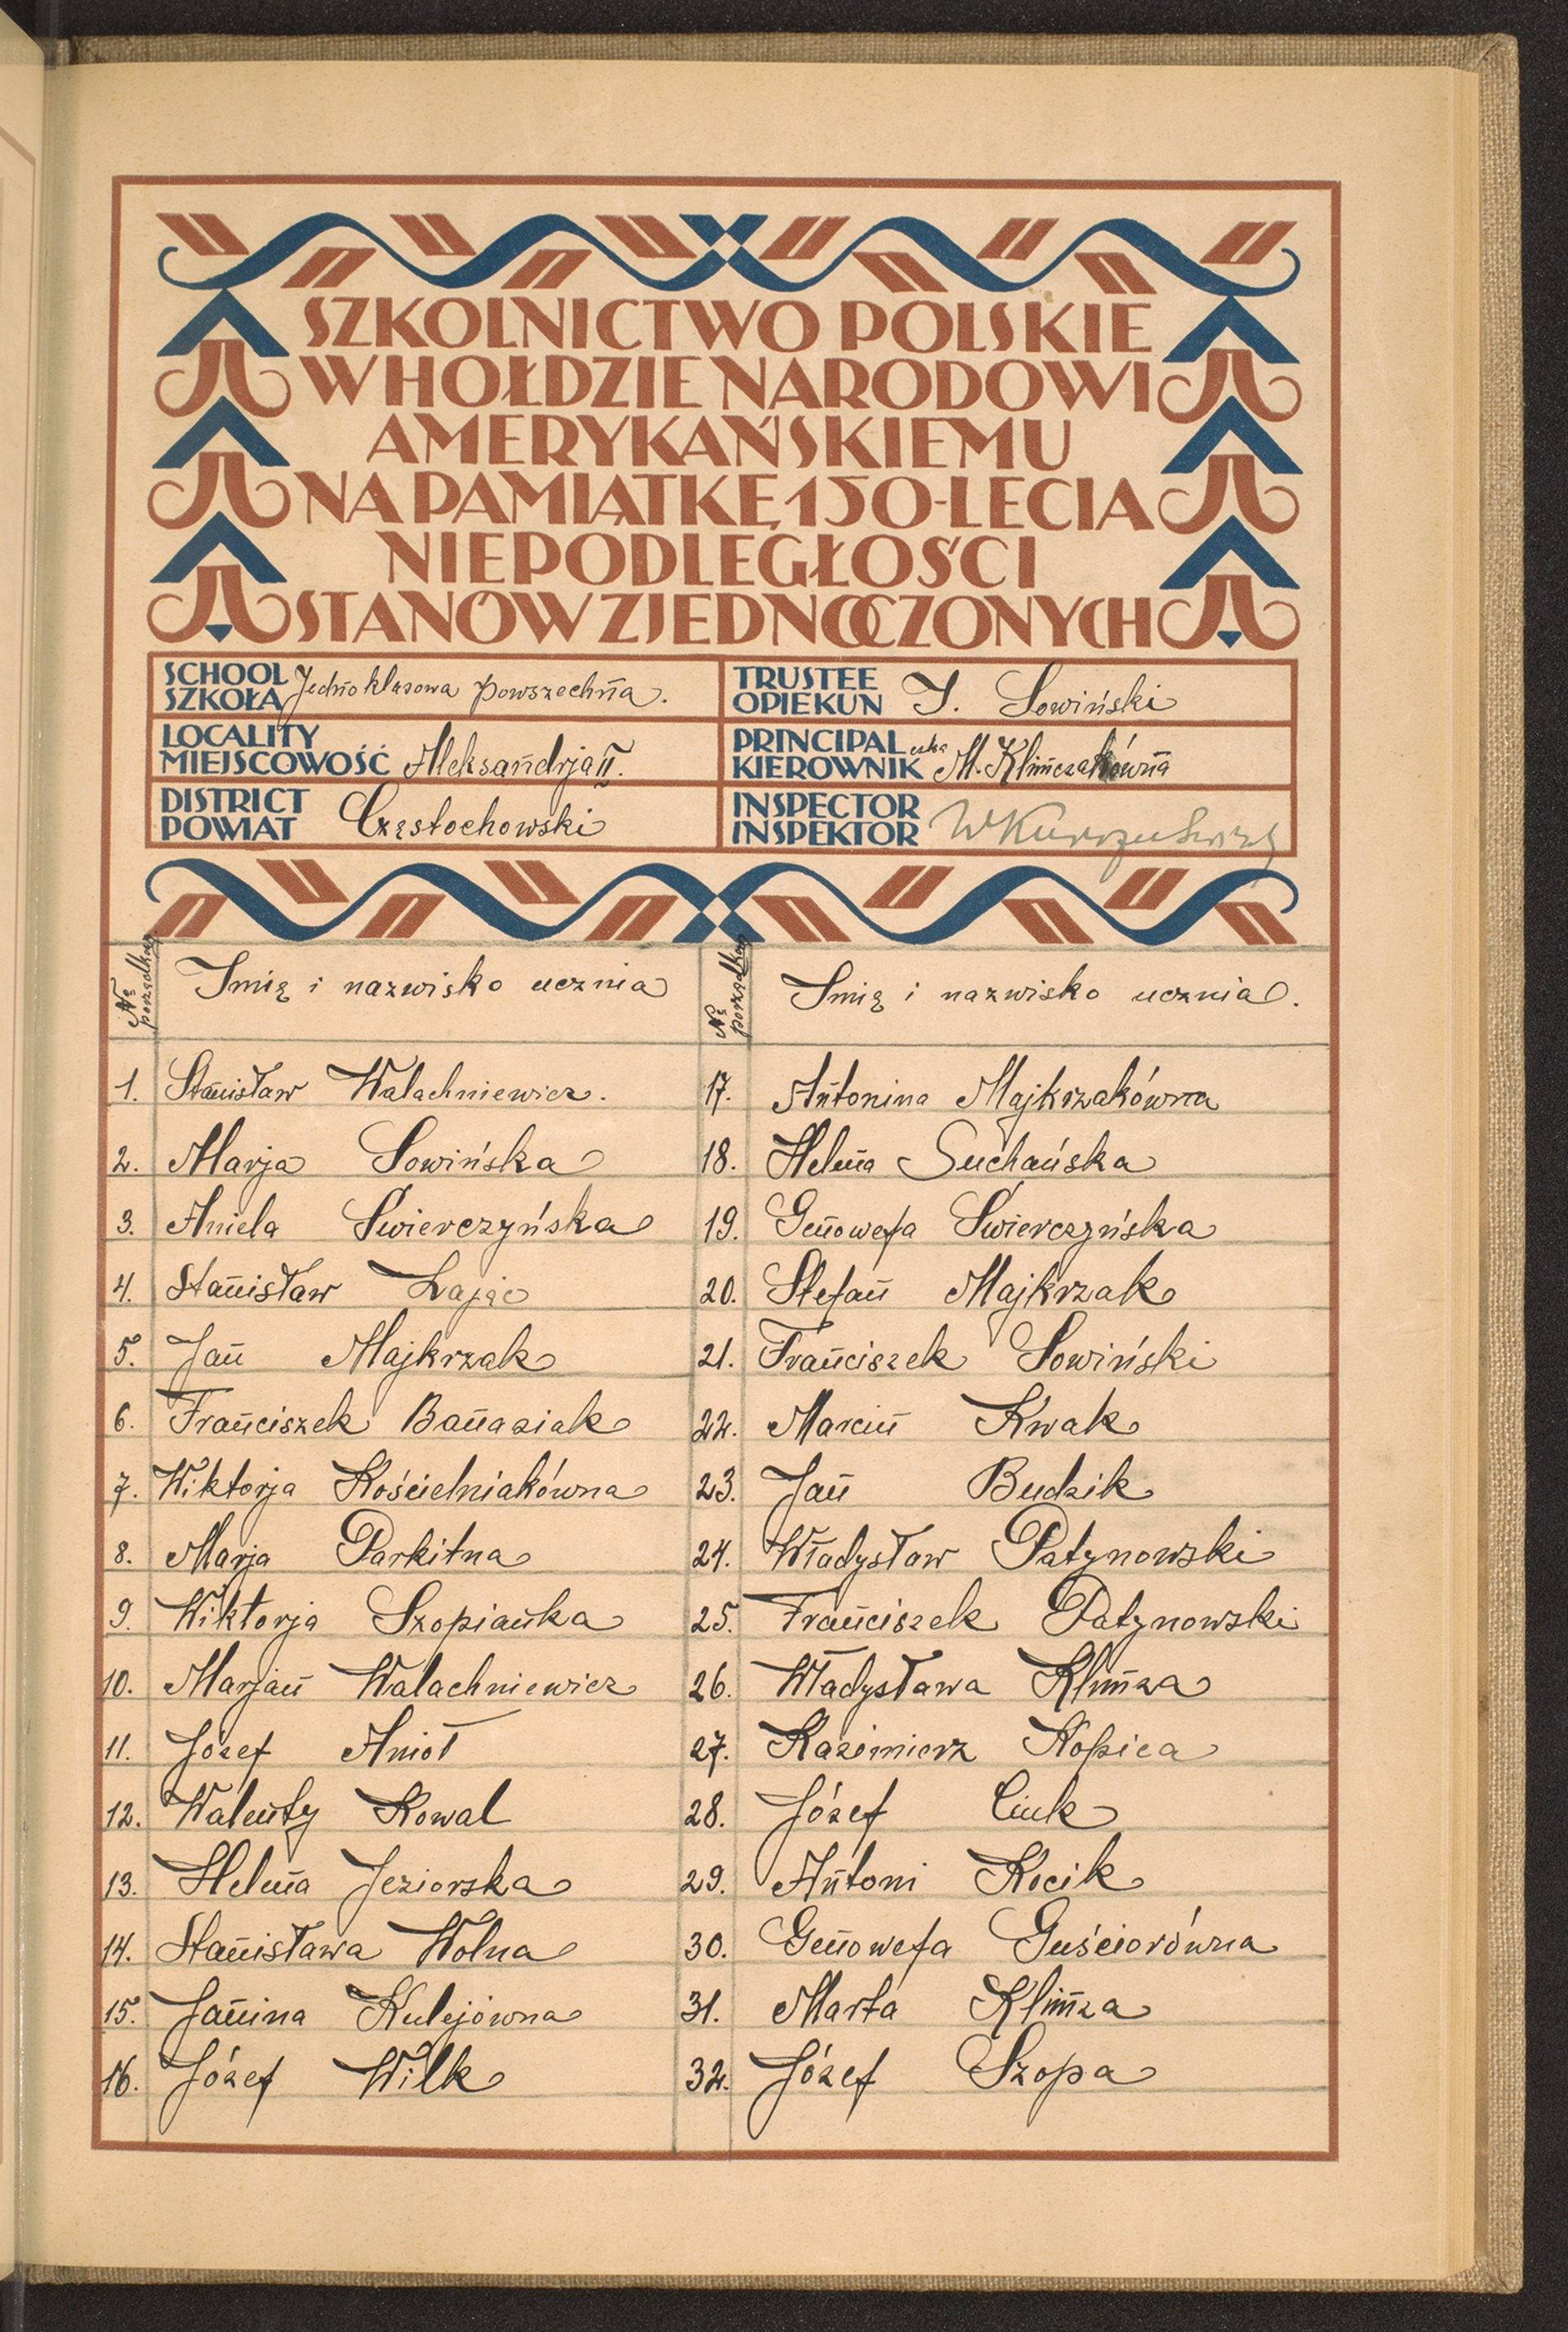 SZKOLNICTWO POLSKIE
W HOŁDZIE NARODOWI
AMERYKAŃSKIEMU
NA PAMIĄTKĘ 150-LECIA
NIEPODLEGŁOŚCI
STANÓW ZJEDNOCZONYCH
SCHOOL
SZKOŁA Jednoklasowa powszechna.
TRUSTEE
OPIEKUN J. Sowiński
LOCALITY
MIEJSCOWOŚĆ Aleksandrja II.
PRINCIPAL
KIEROWNIK M. Klimczakówna
DISTRICT
POWIAT Częstochowski
INSPECTOR
INSPEKTOR
№ porządkowy
Imię i nazwisko ucznia
№ porządkowy
Imię i nazwisko ucznia.
1. Stanisław Walachniewicz.
2. Marja Sowińska
3. Aniela Świerczyńska
4. Stanisław Zając
5. Jan Majkrzak
6. Franciszek Banasiak
7. Wiktorja Kościelniakówna
8. Marja Parkitna
9. Wiktorja Szopianka
10. Marjan Walachniewicz
11. Józef Anioł
12. Walenty Kowal
13. Helena Jeziorska
14. Stanisława Wolna
15. Janina Kulejówna
16. Józef Wilk
17. Antonina Majkrzakówna
18. Helena Suchańska
19. Genowefa Świerczyńska
20. Stefan Majkrzak
21. Franciszek Sowiński
22. Marcin Kwak
23. Jan Budzik
24. Władysław Patynowski
25. Franciszek Patynowski
26. Władysława Klimza
27. Kazimierz Kopica
28. Józef Ciuk
29. Antoni Kocik
30. Genowefa Guściorówna
31. Marta Klimza
32. Józef Szopa